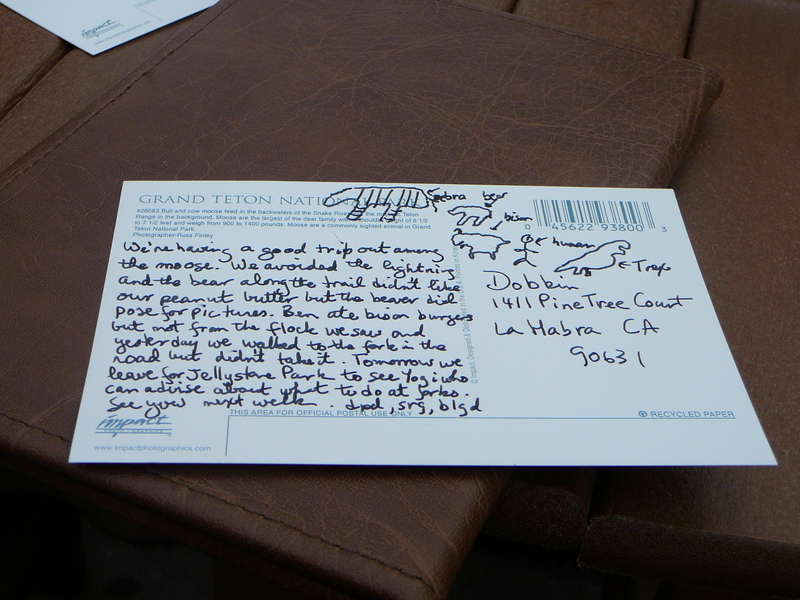 impact
GRAND TETON NATIONAL
#26083 Bull and cow moose feed in the backwaters of the Snake River the Teton
Range in the background. Moose are the largest of the deer family with shoulder height of 6 1/2
to 7 1/2 feet and weigh from 900 to 1400 pounds. Moose are a commonly sighted animal in Grand
Teton National Park.
Photographer-Russ Finley
We're having a good trip out among
the moose. We avoided the lightning
and the bear along the trail didn't like
our peanut butter but the beaver did
pose for pictures. Ben ate bison burgers
but not from the flock we saw and
yesterday we walked to the fork in the
road but didn't take it. Tomorrow we
leave for Jellystone Park to see Yogi who
can advise about what to do at forks.
See you next week. dpd, srg, blgd
zebra
bear
bison
human
T rex
0 45622 93800 3
Dobbin
1411 Pine Tree Court
La Habra CA
90631
impact
www.impactphotographics.com
THIS AREA FOR OFFICIAL POSTAL USE ONLY
RECYCLED PAPER